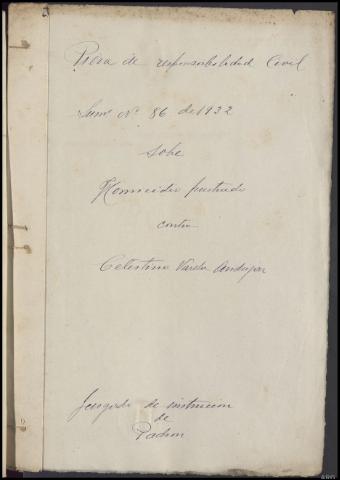 Pieza de responsabilidad Civil
Sumº Nº 86 de 1932
sobe
Homicidio frustrado
contra
Celestino Varela
Juzgado de instrucion
de
Padron